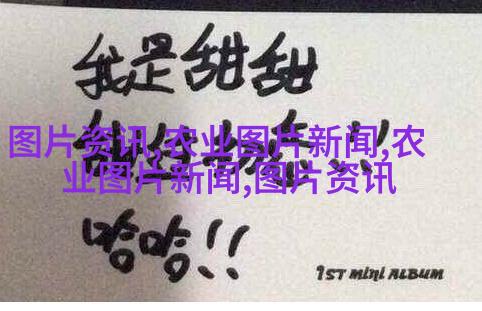 我是甜甜
图片资讯,农业图片新闻,农
业图片新闻,图片资讯
哈哈!!
1ST MINI ALBUM